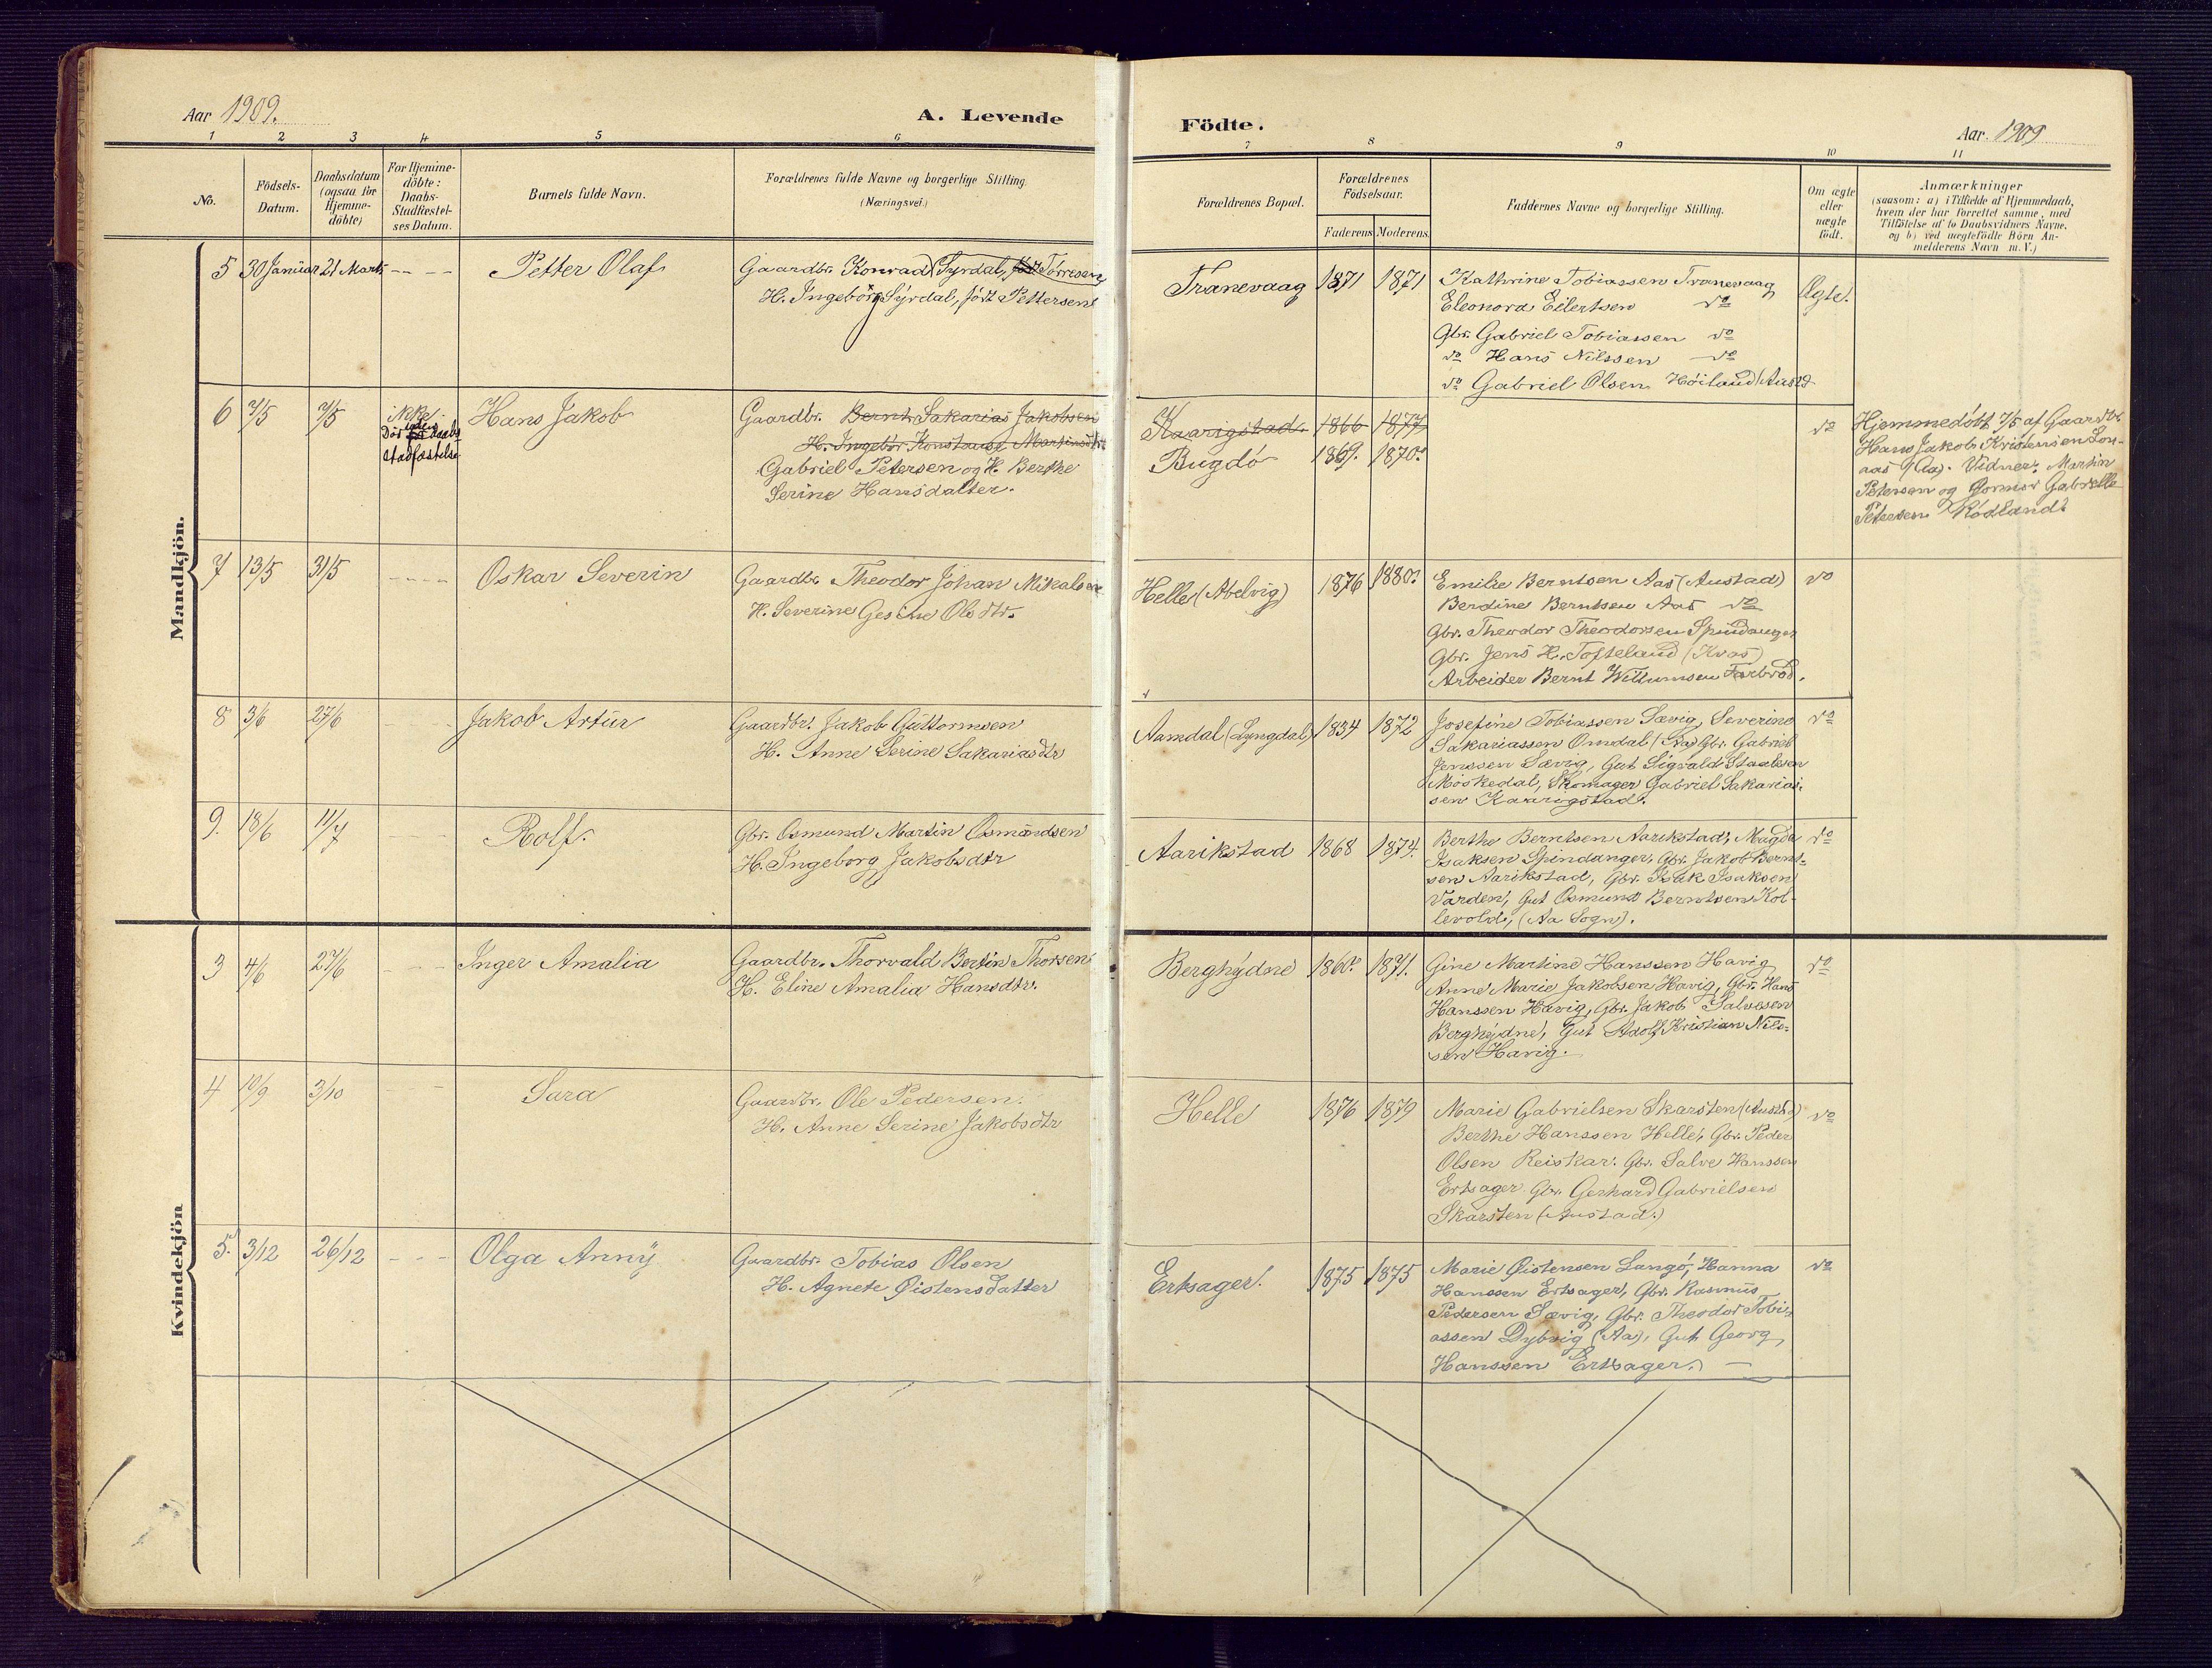 Aar 1909.
A. Levende
Födte.
Aar. 1909
1 2 3 4 5 6
7 8 9 10 11
No.
Födsels-
Datum.
Daabsdatum
(ogsaa for
Hjemme-
döbte)
For Hjemme-
döbte:
Daabs-
Stadfæstel-
ses Datum.
Barnets fulde Navn.
Forældrenes fulde Navne og borgerlige Stilling.
(Næringsvei.)
Forældrenes Bopæl.
Forældrenes
Födselsaar.
Faderens Moderens.
Faddernes Navne og borgerlige Stilling.
Om ægte
eller
uægte
født.
Anmærkninger
(saasom: a) i Tilfælde af Hjemmedaab,
hvem der har forrettet samme, med
Tilföielse af to Daabsvidners Navne.
og b) ved uægtefödte Börn An-
melderens Navn m. V.)
Mandkjön.
5 30 Januar 21 Marts
Petter Olaf
Gaardbr. Konrad Syrdal, født Tørresen
H. Ingeborg Syrdal, født Pettersen
Tranevaag
1871 1871
Kathrine Tobiassen Tranevaag
Eleonora Eilertsen do
Gbr. Gabriel Tobiassen do
do Hans Nilssen do
do Gabriel Olsen Høiland (Austd
Ægte.
6 7/5 7/5
ikke
Daabs
stadfæstelse
Hans Jakob
Gaardbr. Bernt Sakarias Jakobsen
H. Ingebor. Konstanse Martinsdtr
Gabriel Petersen og H. Berthe
Serine Hansdatter.
Kaarigstad.
Bugdö
1866 1877
1869. 1870.
do
Hjemmedöbt 7/5 af Gaardbr.
Hans Jakob Kristensen Lon-
aas (Aa). Vidner: Martin
Petersen og Gabrielle
Petersen Rödland.
7 13/5 31/5
Oskar Severin
Gaardbr. Theodor Johan Mikalsen
H. Severine Gesine Olsdtr.
Helle (Abelvig)
1876 1880.
Emilie Berntsen Aas (Austad)
Berdine Berntsen Aas do
Gbr. Theodor Theodorsen Spindanger
Gbr. Jens H. Tofteland (Kvas)
Arbeider Bernt Willumsen Farbrød.
do
8 3/6 27/6
Jakob Artur
Gaardbr. Jakob Guttormsen
H. Anne Serine Sakariasdtr
Aamdal (Lyngdal)
1834 1872
Josefine Tobiassen Sævig, Severine
Sakariassen Omdal (Aa) Gbr. Gabriel
Jenssen Sævig, Gut Sigvald Staalesen
Møskedal, Skomager Gabriel Sakarias-
sen Kaarigstad.
do
9. 18/6 11/7
Rolf.
Gbr. Osmund Martin Osmundsen
H. Ingeborg Jakobsdtr
Aarikstad
1868 1874.
Berthe Berntsen Aarikstad, Magda
Isaksen Spindanger, Gbr. Jakob Bernt-
sen Aarikstad, Gbr. Isak Isaksen
Varden, Gut Osmund Berntsen Kol-
levold, (Aa Sogn).
do
Kvindekjön
3 4/6 27/6
Inger Amalia
Gaardbr. Thorvald Bertin Thorsen
H. Eline Amalia Hansdtr.
Berghydne
1860. 1871.
Gine Martine Hanssen Havig
Anne Marie Jakobsen Havig, Gbr. Hans
Hanssen Havig, Gbr. Jakob Salvesen
Berghydne, Gut Adolf Kristian Nils-
sen Havig.
do
4 10/9 3/10
Sara
Gaardbr. Ole Pedersen.
H. Anne Serine Jakobsdtr
Helle
1876 1879
Marie Gabrielsen Skarsten (Austad)
Berthe Hanssen Helle, Gbr. Peder
Olsen Reiskar. Gbr. Salve Hanssen
Ertsager. Gbr. Gerhard Gabrielsen
Skarsten (Austad.)
do
5. 3/12 26/12
Olga Anny
Gaardbr. Tobias Olsen
H. Agnete Øistensdatter
Ertsager.
1875 1875
Marie Øistensen Langø, Hanna
Hanssen Ertsager, Gbr. Rasmus
Pedersen Sævig, Gbr. Theodor Tobi-
assen Dybvig (Aa), Gut Georg
Hanssen Ertsager.
do